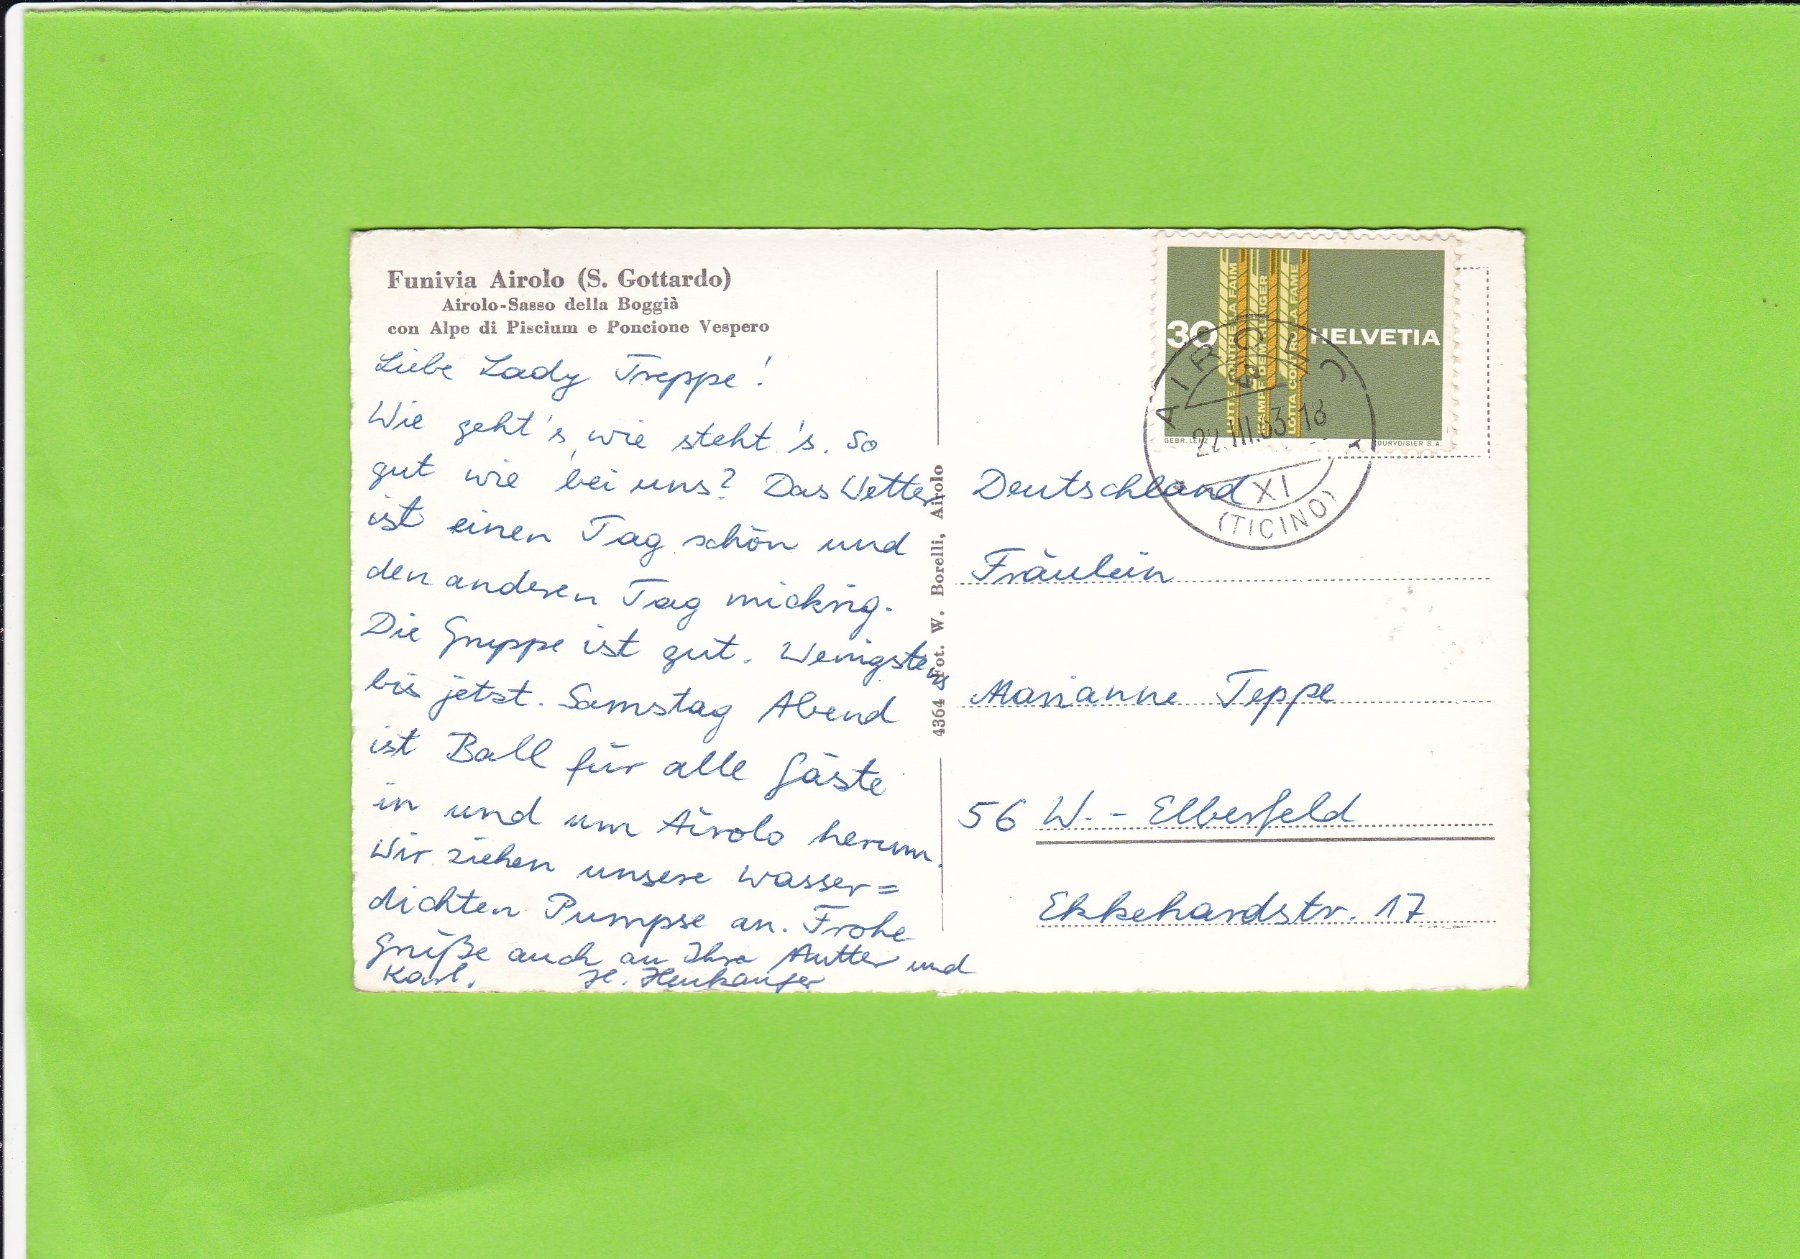 Funivia Airolo (S. Gottardo)
Airolo-Sasso della Boggià
con Alpe di Piscium e Poncione Vespero
Liebe Lady Treppe!
Wie geht's, wie steht's. So
gut wie bei uns? Das Wetter
ist einen Tag schön und
den anderen Tag mickrig.
Die Gruppe ist gut. Wenigstens
bis jetzt. Samstag Abend
ist Ball für alle Gäste
in und um Airolo herum.
Wir ziehen unsere wasser=
dichten Pumpse an. Frohe
Grüße auch an Ihre Mutter und
Karl. H.
4364 Fot. W. Borelli, Airolo
30 HELVETIA
LUTTE CONTRE LA FAIM
KAMPF DEM HUNGER
LOTTA CONTRO LA FAME
GEBR. LENZ
COURVOISIER S.A.
AIROLO
22.III.63 18
XI
(TICINO)
Deutschland
Fräulein
Marianne Teppe
56 W.- Elberfeld
Ekkehardstr. 17